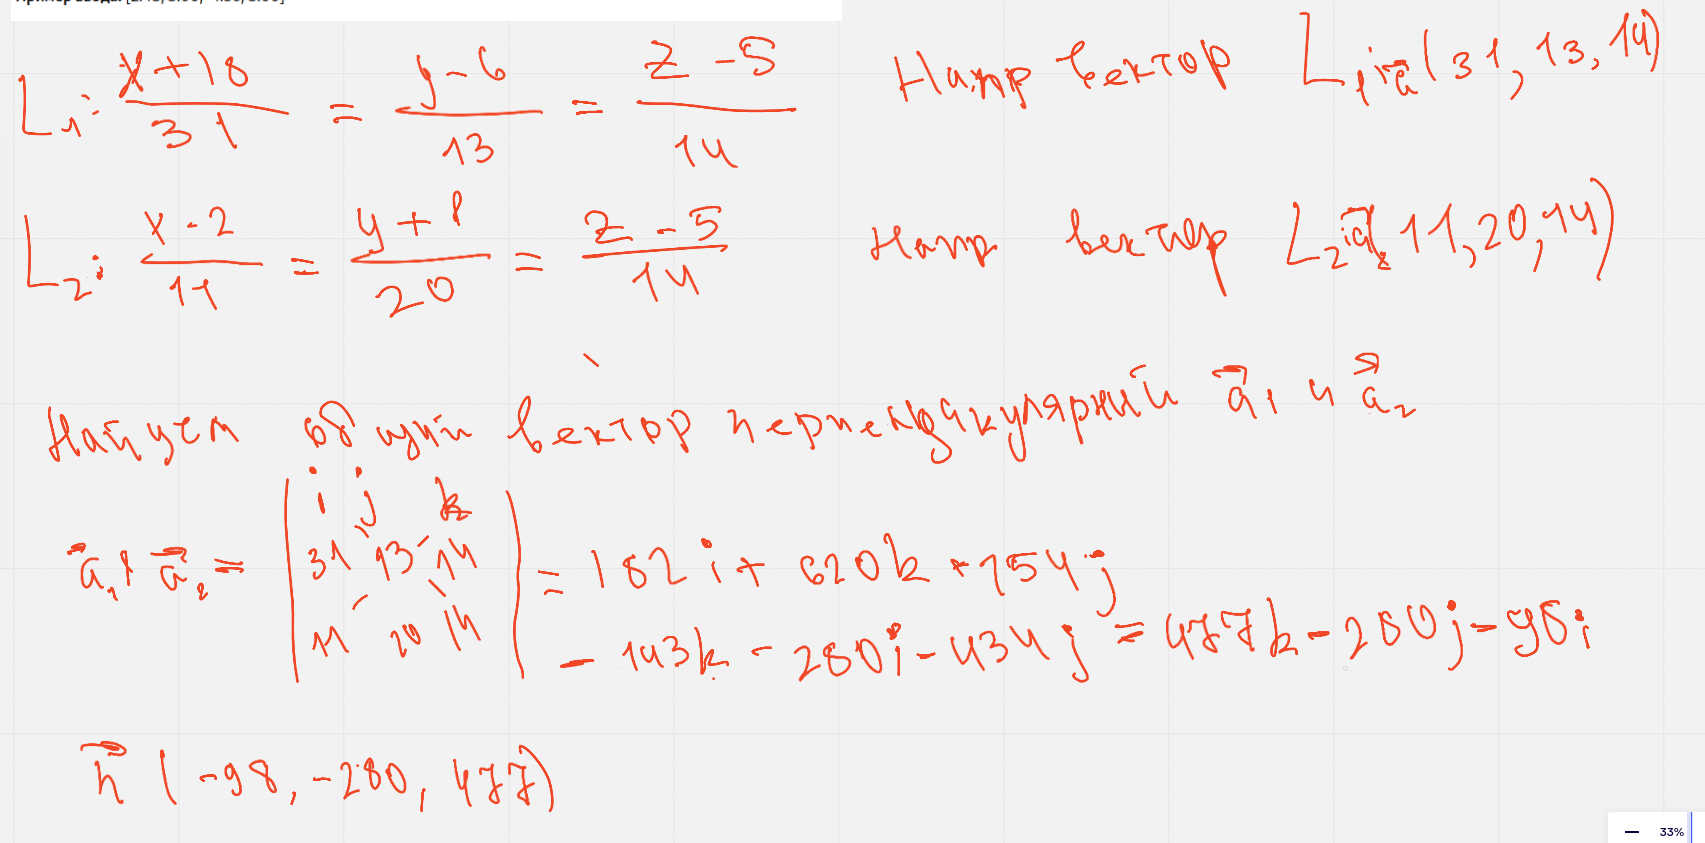 L₁: (x+18)/31 = (y-6)/13 = (z-5)/14 Напр вектор L₁: a⃗ (31, 13, 14)
L₂: (x-2)/11 = (y+8)/20 = (z-5)/14 Напр вектор L₂: a⃗₂ (11, 20, 14)
Найдем общий вектор перпендикулярный a⃗₁ и a⃗₂
a⃗₁ × a⃗₂ = | i j k |
| 31 13 14 |
| 11 20 14 | = 182i + 620k + 154j
- 143k - 280i - 434j = 477k - 280j - 98i
n⃗ (-98, -280, 477)
33%